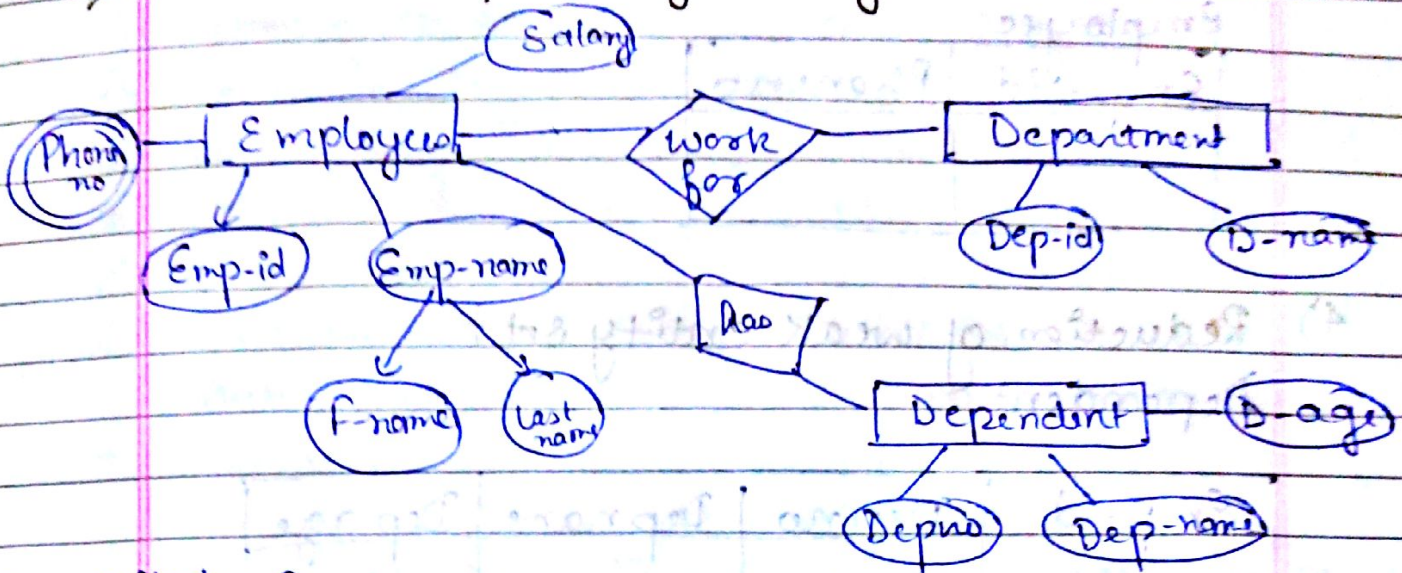 Salary
Phone no
Employees
Work for
Department
Emp-id
Emp-name
Dep-id
D-name
has
F-name
Last name
Dependent
D-age
Depno
Dep-name